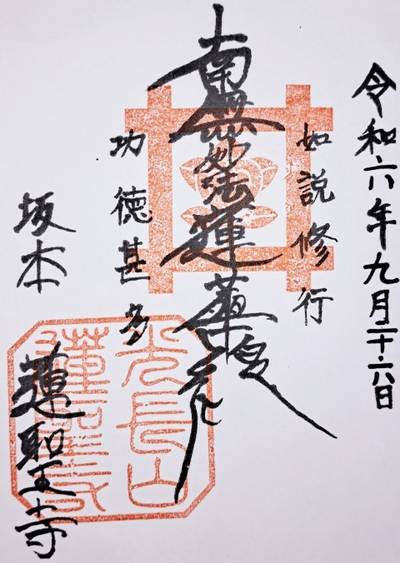 令和六年九月二十六日
如説修行
南無妙法蓮華経
功徳甚多
坂本
蓮聖寺
光長山
蓮聖寺